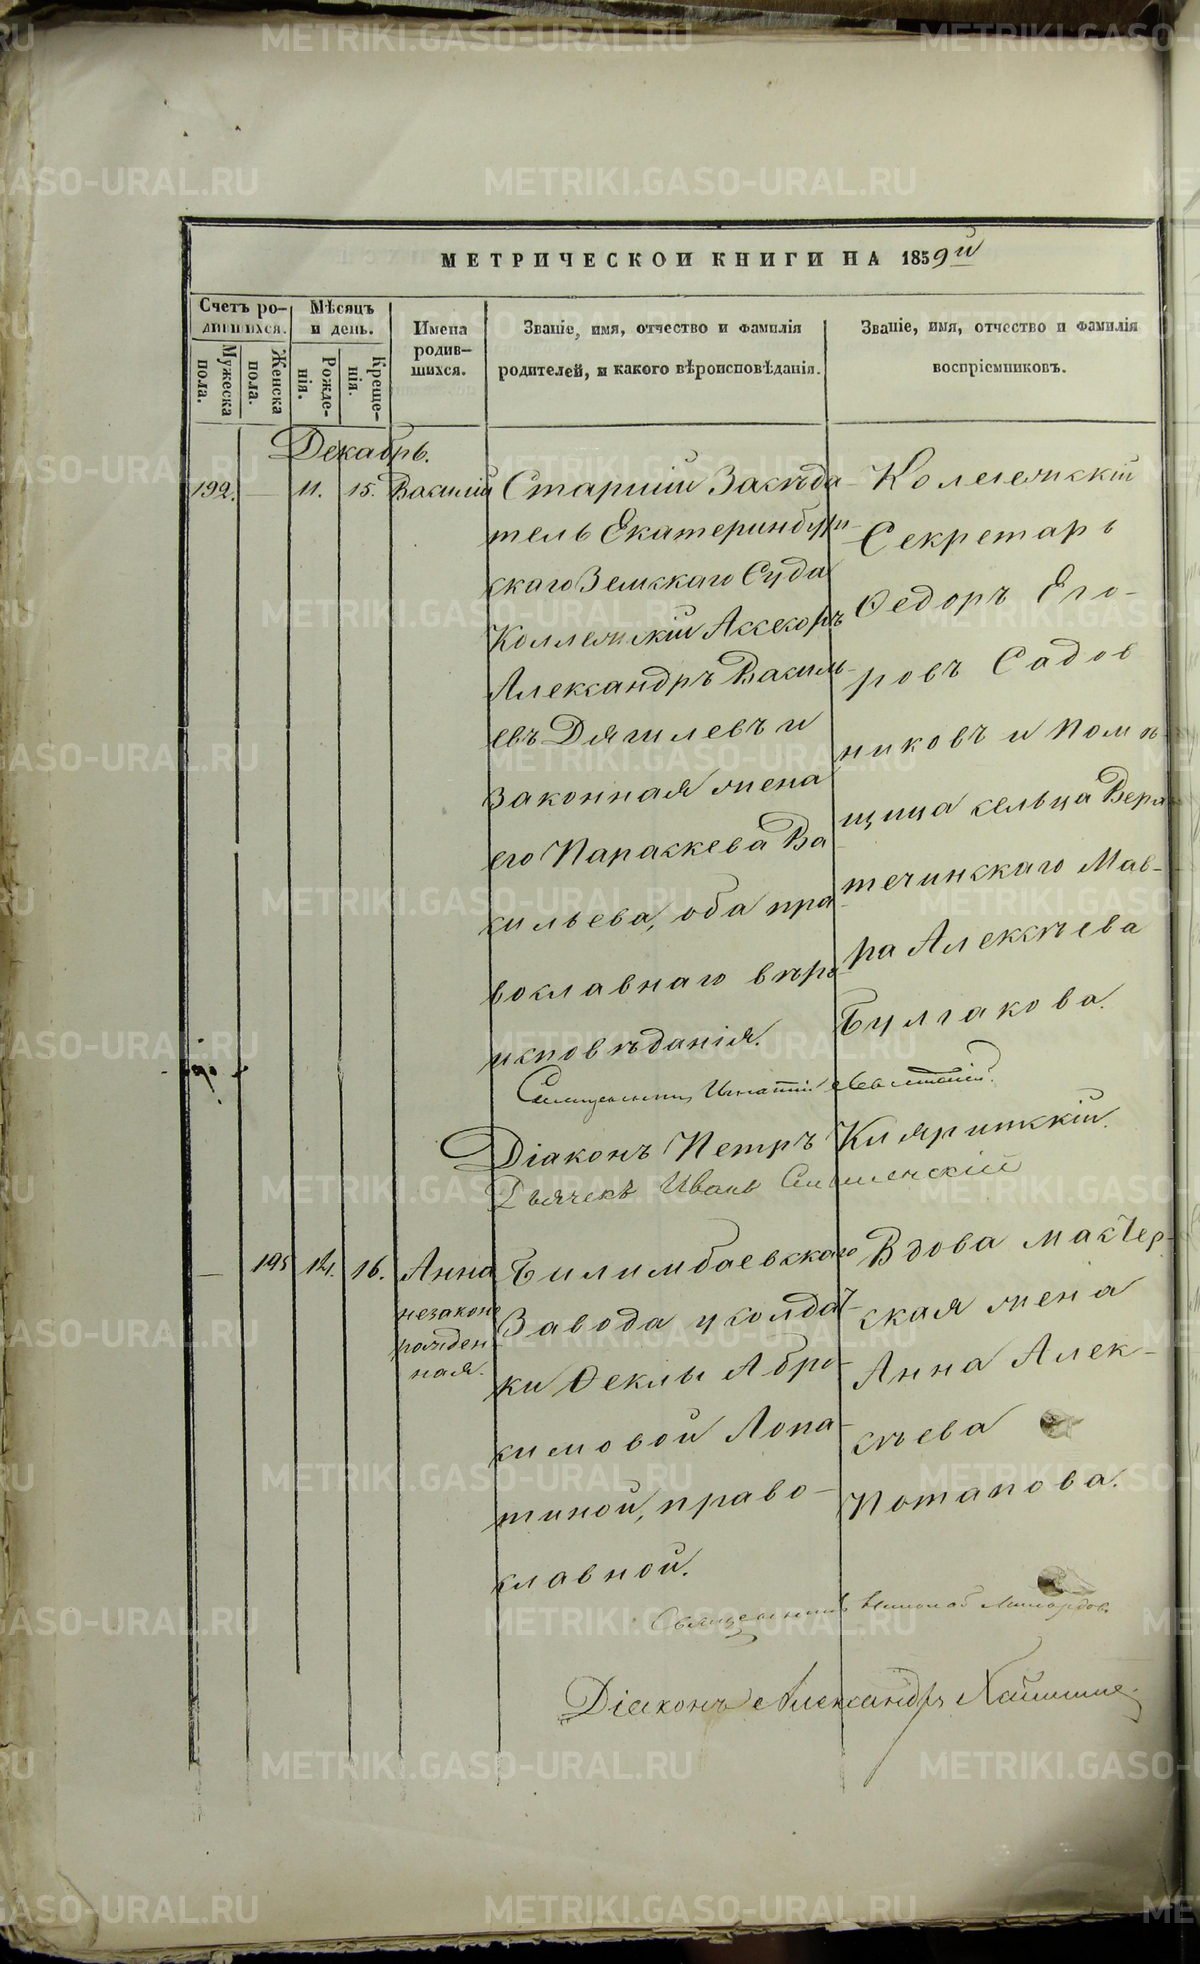 МЕТРИЧЕСКОЙ КНИГИ НА 1859й
Счетъ ро-
дившихся.
Мѣсяцъ
и день.
Имена
родив-
шихся.
Званіе, имя, отчество и фамилія
родителей, и какого вѣроисповѣданія.
Званіе, имя, отчество и фамилія
воспріемниковъ.
Мужеска
пола.
Женска
пола.
Рожде-
нія.
Креще-
нія.
Декабрь.
192. — 11. 15. Василій
Старшій Засѣда-
тель Екатеринбург-
скаго Земскаго Суда
Коллежскій Ассесоръ
Александръ Василь-
евъ Дягилевъ и
законная жена
его Параскева Ва-
сильева, оба пра-
вославнаго вѣро-
исповѣданія.
Колежскій
Секретарь
Ѳедоръ Его-
ровъ Садов-
никовъ и Помѣ-
щица сельца
течинскаго Мав-
ра Алексѣева
Булгакова.
Священникъ Игнатій
Діаконъ Петръ
Дьячекъ Иванъ Смышленскій
— 195 14. 16. Анна
незаконо
рожден
ная.
Билимбаевскаго
Завода у солдат-
ки Ѳеклы Абро-
симовой Лопа-
тиной, право-
славной.
Вдова мастер-
ская жена
Анна Алек-
сѣева
Потапова.
Священникъ Николай
Діаконъ Александръ
METRIKI.GASO-URAL.RU